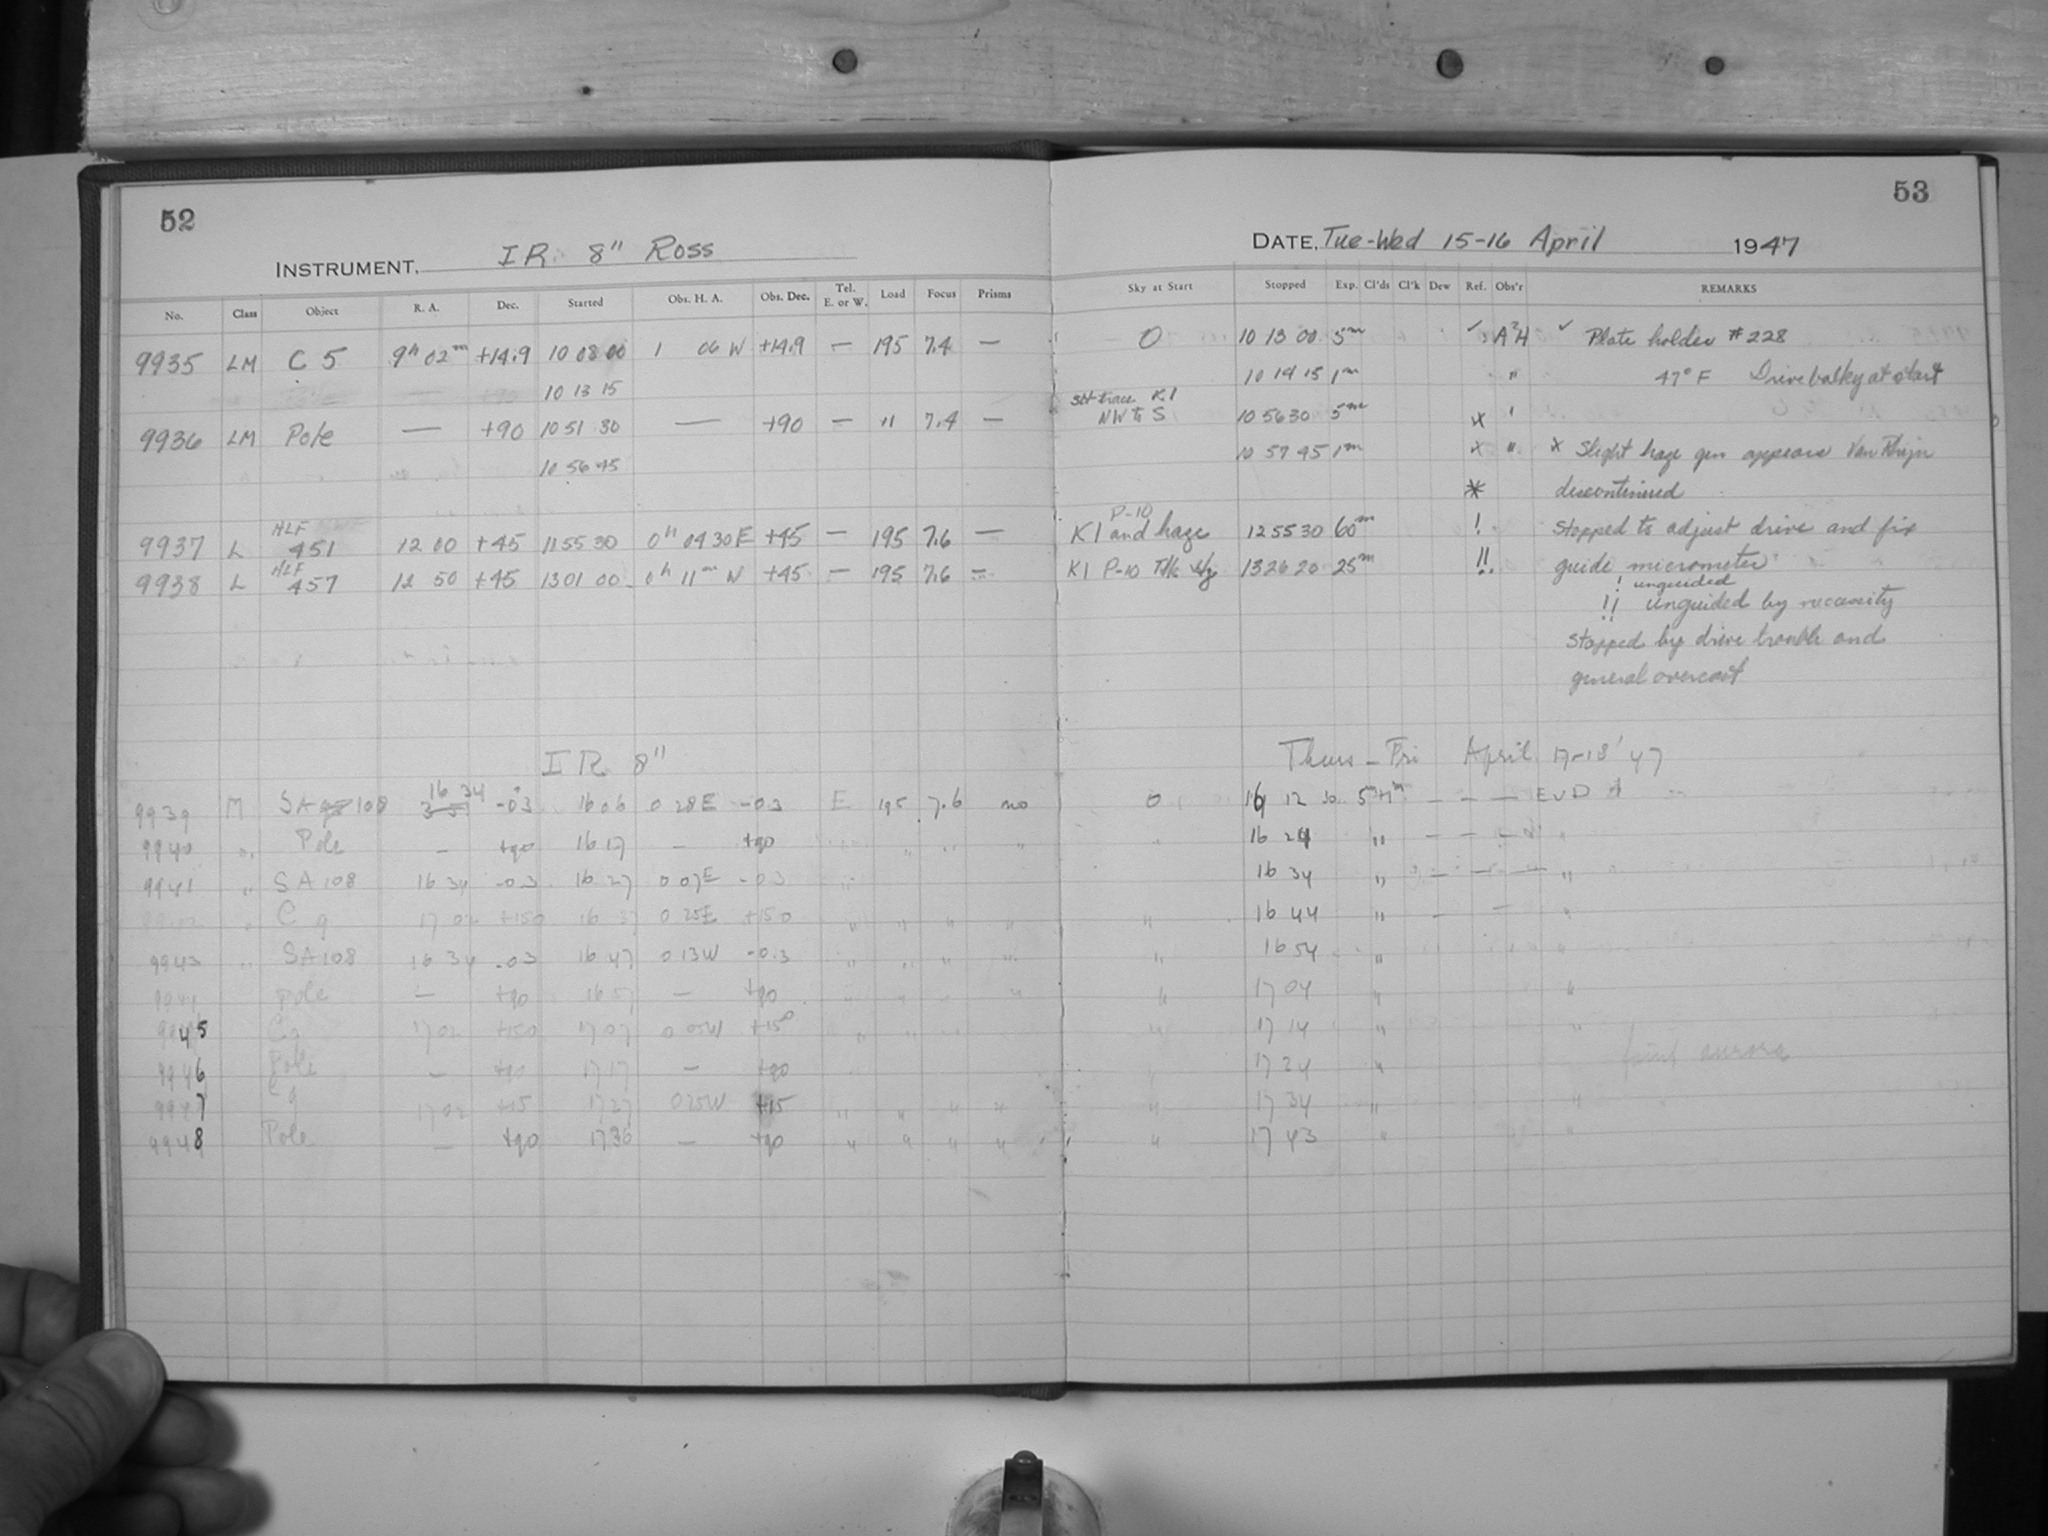 52
INSTRUMENT, IR. 8" Ross
No. Class Object R. A. Dec. Started Obs. H. A. Obs. Dec. Tel. E. or W. Load Focus Prisms
9935 LM C 5 9h 02m +14.9 10 08 00 1 06 W +14.9 — 195 7.4 —
10 13 15
9936 LM Pole — +90 10 51 30 — +90 — " 7.4 —
10 56 45
9937 L HLF 451 12 00 +45 11 55 30 0h 04 30 E +45 — 195 7.6 —
9938 L HLF 457 12 50 +45 13 01 00 0h 11m W +45 — 195 7.6 —
IR 8"
9939 M SA 108 16 34 -03 16 06 0 28E -03 E 195 7.6 no
9940 " Pole — +90 16 17 — +90 " " "
9941 " SA 108 16 34 -03 16 27 0 07E -03 "
" C 9 17 02 +150 16 37 0 25E +150 " " " "
9943 " SA108 16 34 -03 16 47 0 13W -0.3 " " " "
Pole — +90 16 57 — +90 " " "
9945 C9 17 02 +150 17 07 0 05W +15° " "
9946 Pole — +90 17 17 — +90
9947 C9 17 02 +15 17 27 0 25W +15 " " " "
9948 Pole — +90 17 36 — +90 " " " "
53
DATE, Tue-Wed 15-16 April 1947
Sky at Start Stopped Exp. Cl'ds Cl'k Dew Ref. Obs'r REMARKS
0 10 13 00 5m ✓ A²H ✓ Plate holder #228
10 14 15 1m " 47° F Drive balky at start
slt trace K1
NW to S 10 56 30 5m x '
10 57 45 1m x " x Slight haze gen appears Van Rhijn
* discontinued
P-10
K1 and haze 12 55 30 60m ! Stopped to adjust drive and fix
K1 P-10 Thk Hz 13 26 20 25m !! guide micrometer
! unguided
!! unguided by necessity
Stopped by drive trouble and
general overcast
Thurs - Fri April 17-18 '47
0 16 12 30 5m+1m — — — EvD
16 24 " — — — "
16 34 " — — — "
" 16 44 " — — "
" 16 54 " "
" 17 04 " "
" 17 14 " "
17 24 " faint aurora
" 17 34 " "
" 17 43 " "